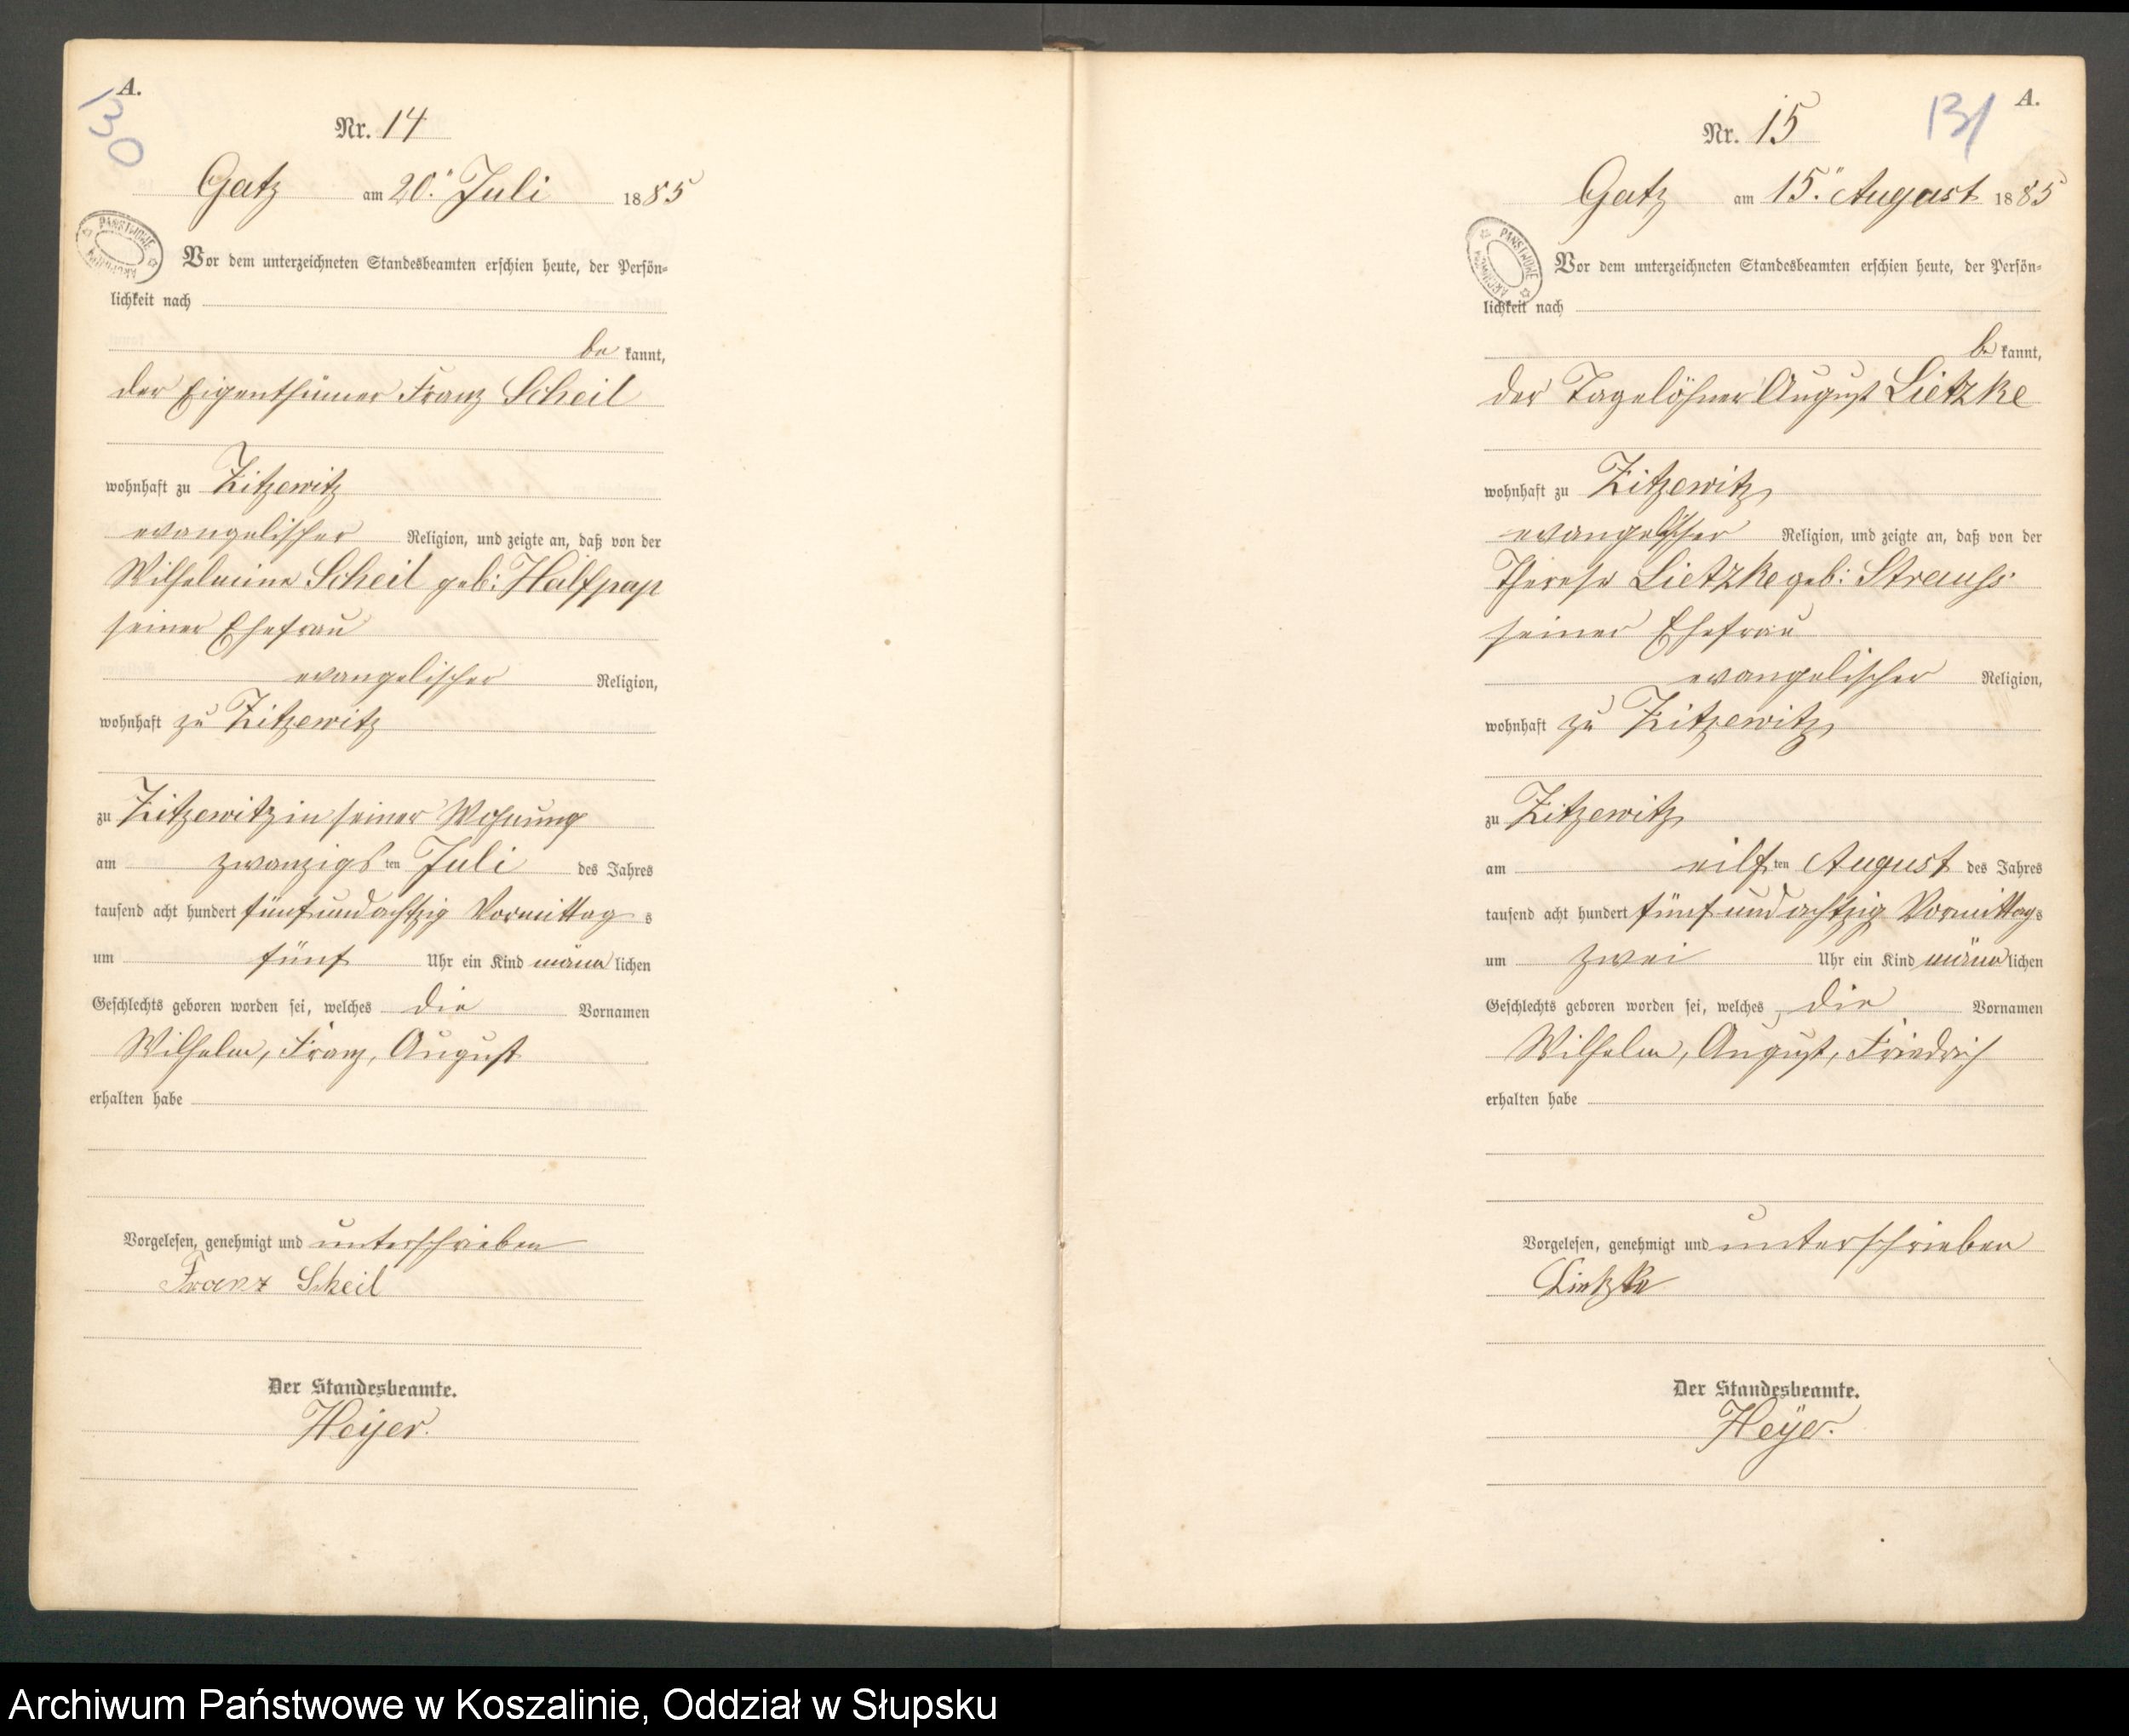 A.
130
Nr. 14
Gatz am 20.ⁿ Juli 1885
PAŃSTWOWE ARCHIWUM
Vor dem unterzeichneten Standesbeamten erschien heute, der Persön=
lichkeit nach
be kannt,
der Eigenthümer Franz Scheil
wohnhaft zu Zitzewitz
evangelischer Religion, und zeigte an, daß von der
Wilhelmine Scheil geb: Halfpap
seiner Ehefrau
evangelischer Religion,
wohnhaft zu Zitzewitz
zu Zitzewitz in seiner Wohnung
am zwanzigsten Juli des Jahres
tausend acht hundert fünf und achtzig Vormittags
um fünf Uhr ein Kind männlichen
Geschlechts geboren worden sei, welches die Vornamen
Wilhelm, Franz, August
erhalten habe
Vorgelesen, genehmigt und unterschrieben
Franz Scheil
Der Standesbeamte.
Heyer.
A.
131
Nr. 15
Gatz am 15.ⁿ August 1885
PAŃSTWOWE ARCHIWUM
Vor dem unterzeichneten Standesbeamten erschien heute, der Persön=
lichkeit nach
be kannt,
der Tagelöhner August Lietzke
wohnhaft zu Zitzewitz
evangelischer Religion, und zeigte an, daß von der
Therese Lietzke geb: Strauss
seiner Ehefrau
evangelischer Religion,
wohnhaft zu Zitzewitz
zu Zitzewitz
am eilften August des Jahres
tausend acht hundert fünf und achtzig Vormittags
um zwei Uhr ein Kind männlichen
Geschlechts geboren worden sei, welches die Vornamen
Wilhelm, August, Friedrich
erhalten habe
Vorgelesen, genehmigt und unterschrieben
Lietzke
Der Standesbeamte.
Heÿer.
Archiwum Państwowe w Koszalinie, Oddział w Słupsku